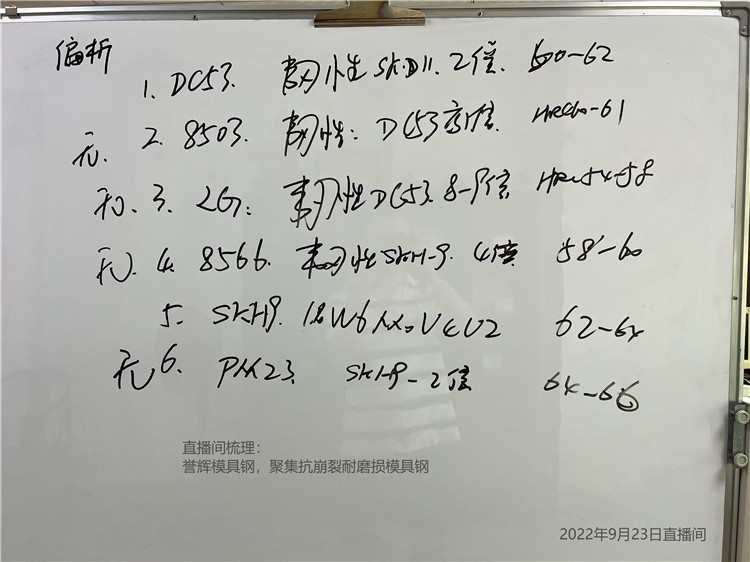 偏析
1. DC53. 韧性SKD11. 2倍. 60-62
无. 2. 8503. 韧性: DC53高1倍 HRC60-61
无. 3. 2G: 韧性DC53. 8-9倍 HRC54-58
无. 4. 8566. 韧性SKH-9. 4倍 58-60
5. SKH9. W6Mo5Cr4V2 62-64
无 6. PM23. SKH9-2倍 64-66
直播间梳理:
誉辉模具钢，聚集抗崩裂耐磨损模具钢
2022年9月23日直播间